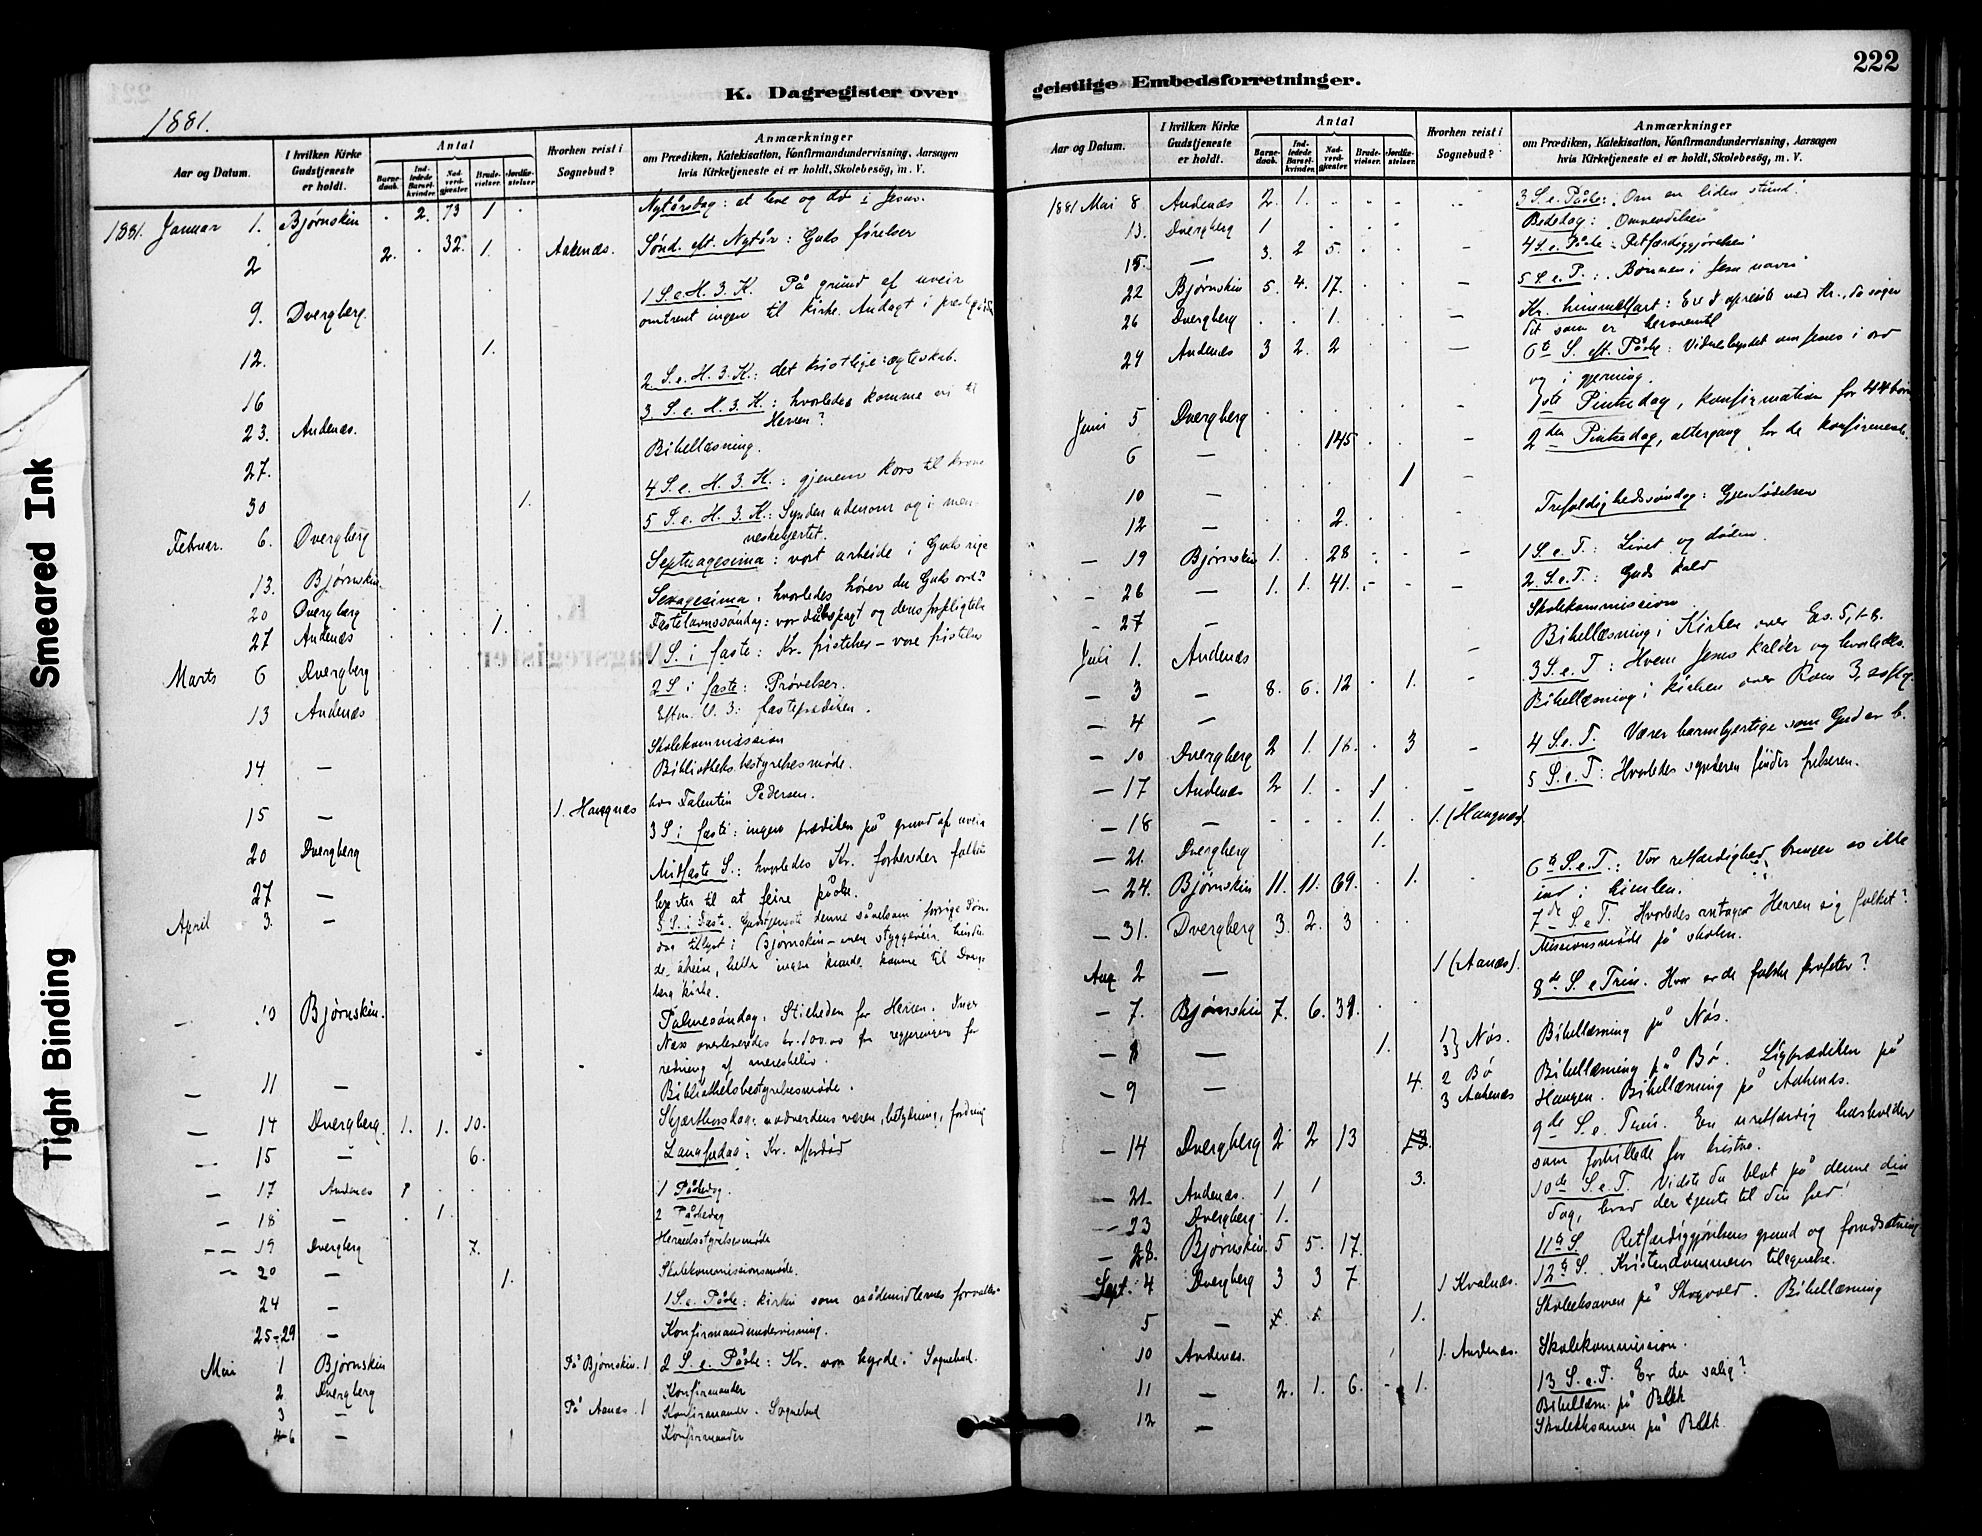 222
K. Dagregister over
geistlige Embedsforretninger.
1881.
Smeared Ink
Tight Binding
Aar og Datum.
I hvilken Kirke Gudstjeneste er holdt.
Antal
Barnedaab.
Indledede Barselkvinder
Nadverdgjester
Brudevielser.
Jordfæstelser
Hvorhen reist i Sognebud?
Anmærkninger
om Prædiken, Katekisation, Konfirmandundervisning, Aarsagen
hvis Kirketjeneste ei er holdt, Skolebesög, m. V.
1881. Januar 1. Bjørnskin . 2. 73 1 . Nytårsdag: at leve og dø i Jesus.
2 2. . 32. 1. Aakenæs. Sønd. eft. Nytår: Guds førelser
9. Dvergberg. 1 S.e.H.3.K. På grund af uveir
omtrent ingen til kirke. Andagt i
12. 1.
16 2 S.e.H.3.K.: det kristlige ægteskab.
23. Andenæs. 3 S.e.H.3.K.: hvorledes komme vi til
Herren?
27. Bibellæsning.
30 1. 4 S.e.H.3.K.: gjenem kors til krone
Februar. 6. Dvergberg 5 S.e.H.3.K: Synden udenom og i men-
neskehjertet.
13. Bjørnskin Septuagesima: vort arbeide i Guds rige
20 Dvergberg Sexagesima: hvorledes hører du Guds ord?
27 Andenæs 1. Fastelavnssøndag: vor dåbspagt og dens forpligtelse
Marts 6 Dvergberg 1 S. i faste: Kr. fristelser – vore fristelser
13 Andenæs 2 S i faste: Prøvelser.
Eftm. Fasteprædiken.
Skolekommission
14. — Bibliotheksbestyrelsesmøde.
15 — 1. Haugnæs hos Talentin Pedersen.
20 Dvergberg 3 S. i faste: ingen prædiken på grund af uveir
27 — Midfaste S.: hvorledes Kr. forbereder folkets
hjerter til at feire påske.
April 3. — 5 S. i Faste. Gudstjeneste denne såvelsom forrige Søn-
dag tillyst i Bjørnskin – men styggeveir hindre-
de afreise, heller ingen kunde komme til Dverg-
berg kirke.
10 Bjørnskin. Palmesøndag. Stilheden for Herren.
redning af menneskeliv.
11 — Bibliothekbestyrelsesmøde.
14 Dvergberg. 1. 1. 10. Skjærthorsdag: nadverdens væsen, betydning, fordring
15 — 6. Langfredag: Kr. offerdød
17 Andenæs 1 1 Påskedag.
18 — 1. 2 Påskedag
19 Dvergberg 7. Herredsstyrelsesmøde
20 — 1. Skolekommissionsmøde.
24 — 1 S.e. Påske: kirken som nådemidlernes forvalter
25–29 — Konfirmandundervisning.
Mai 1 Bjørnskin På Bjørnskin. 1 2 S. e. Påske: Kr. vor hyrde. Sognebud.
2 Dvergberg Konfirmander
3 — På Aanæs. 1 Konfirmander. Sognebud
4–6 — Konfirmander
Aar og Datum.
I hvilken Kirke Gudstjeneste er holdt.
Antal
Barnedaab.
Indledede Barselkvinder.
Nadverdgjester
Brudevielser.
Jordfæstelser.
Hvorhen reist i Sognebud?
Anmærkninger
om Prædiken, Katekisation, Konfirmandundervisning, Aarsagen
hvis Kirketjeneste ei er holdt, Skolebesög, m. V.
1881 Mai 8 Andenæs 2. 1. 3 S.e. Påske: "Om en liden stund."
13. Dvergberg 1 Bededag: "Omvendelsen"
15. — 3. 2 5. 4 S.e. Påske: Retfærdiggjørelsen
22 Bjørnskin 5. 4. 17. 5 S.e.P.: Bønnen i Jesu navn
26 Dvergberg 1. Kr. himmelfart: Er I opreiste med Kr., da søger
det som er heroventil
29 Andenæs 3 2. 2 6te S. eft. Påske: Vidnesbyrdet om Jesus i ord
og i gjerning.
Juni 5 Dvergberg 1ste Pintsedag, konfirmation for 44 børn
6 — 145 2den Pintsedag, altergang for de konfirmerede.
10 — 1
12 — 2. Trefoldighedssøndag: Gjenfødelsen
19 Bjørnskin 1. 28 1 S.e.T.: Livet og døden.
26 — 1. 1. 41. 2 S.e.T.: Guds kald
27 — Skolekommission
Juli 1. Andenæs Bibellæsning i Kirken over Es. 5, 1-8.
3 — 8. 6. 12 1. 3 S.e.T: Hvem Jesus kalder og hvorledes.
4 — Bibellæsning i kirken over Rom 3,
10 Dvergberg 2 1. 16. 3 4 S.e.T. Værer barmhjertige som Gud er b.
17 Andenæs 2 1. 1 5 S.e.T: Hvorledes synderen finder frelseren.
18 — 1. 1. (Haugnæs)
21. Dvergberg 1.
24. Bjørnskin 11. 11. 69. 1. 6te S.e.T.: Vor retfærdighed bringer os ikke
ind i himlen.
31. Dvergberg 3. 2. 3 7de S.e.T. Hvorledes antager Herren sig folket?
Missionsmøde på skolen.
Aug 2 — 1 (Aanæs).
7. Bjørnskin 7. 6. 39. 8de S. e Trin. Hvor er de falske profeter?
8 — 1. 1 3} Nøs. Bibellæsning på Nøs.
9 — 4. 2 Bø Bibellæsning på Bø. Ligprædiken på
3 Aakenæs Haugen. Bibellæsning på Aakenæs.
14 Dvergberg 2 2 13 13. 9de S.e. Trin. En uretfærdig husholder
som forbillede for kristne.
21. Andenæs. 1 1 3. 10de S.e.T. Vidste du blot på denne din
dag, hvad der tjente til din fred!
23 Dvergberg. 1.
28. Bjørnskin. 5 5. 17. 11te S. Retfærdiggjørelsens grund og forudsætning
Sept. 4 Dvergberg 3 3 7. 1 Kvalnæs. 12te S. Kristendommens tilegnelse.
5 — 1. Skoleeksamen på Skogvold. Bibellæsning
10 Andenæs. 1. Andenæs. Skolekommission.
11 — 2. 1. 6. 1. 13 S.e.T. Er du salig?
Bibellæsn. på Bleik
12 — Skoleeksamen på Bleik.